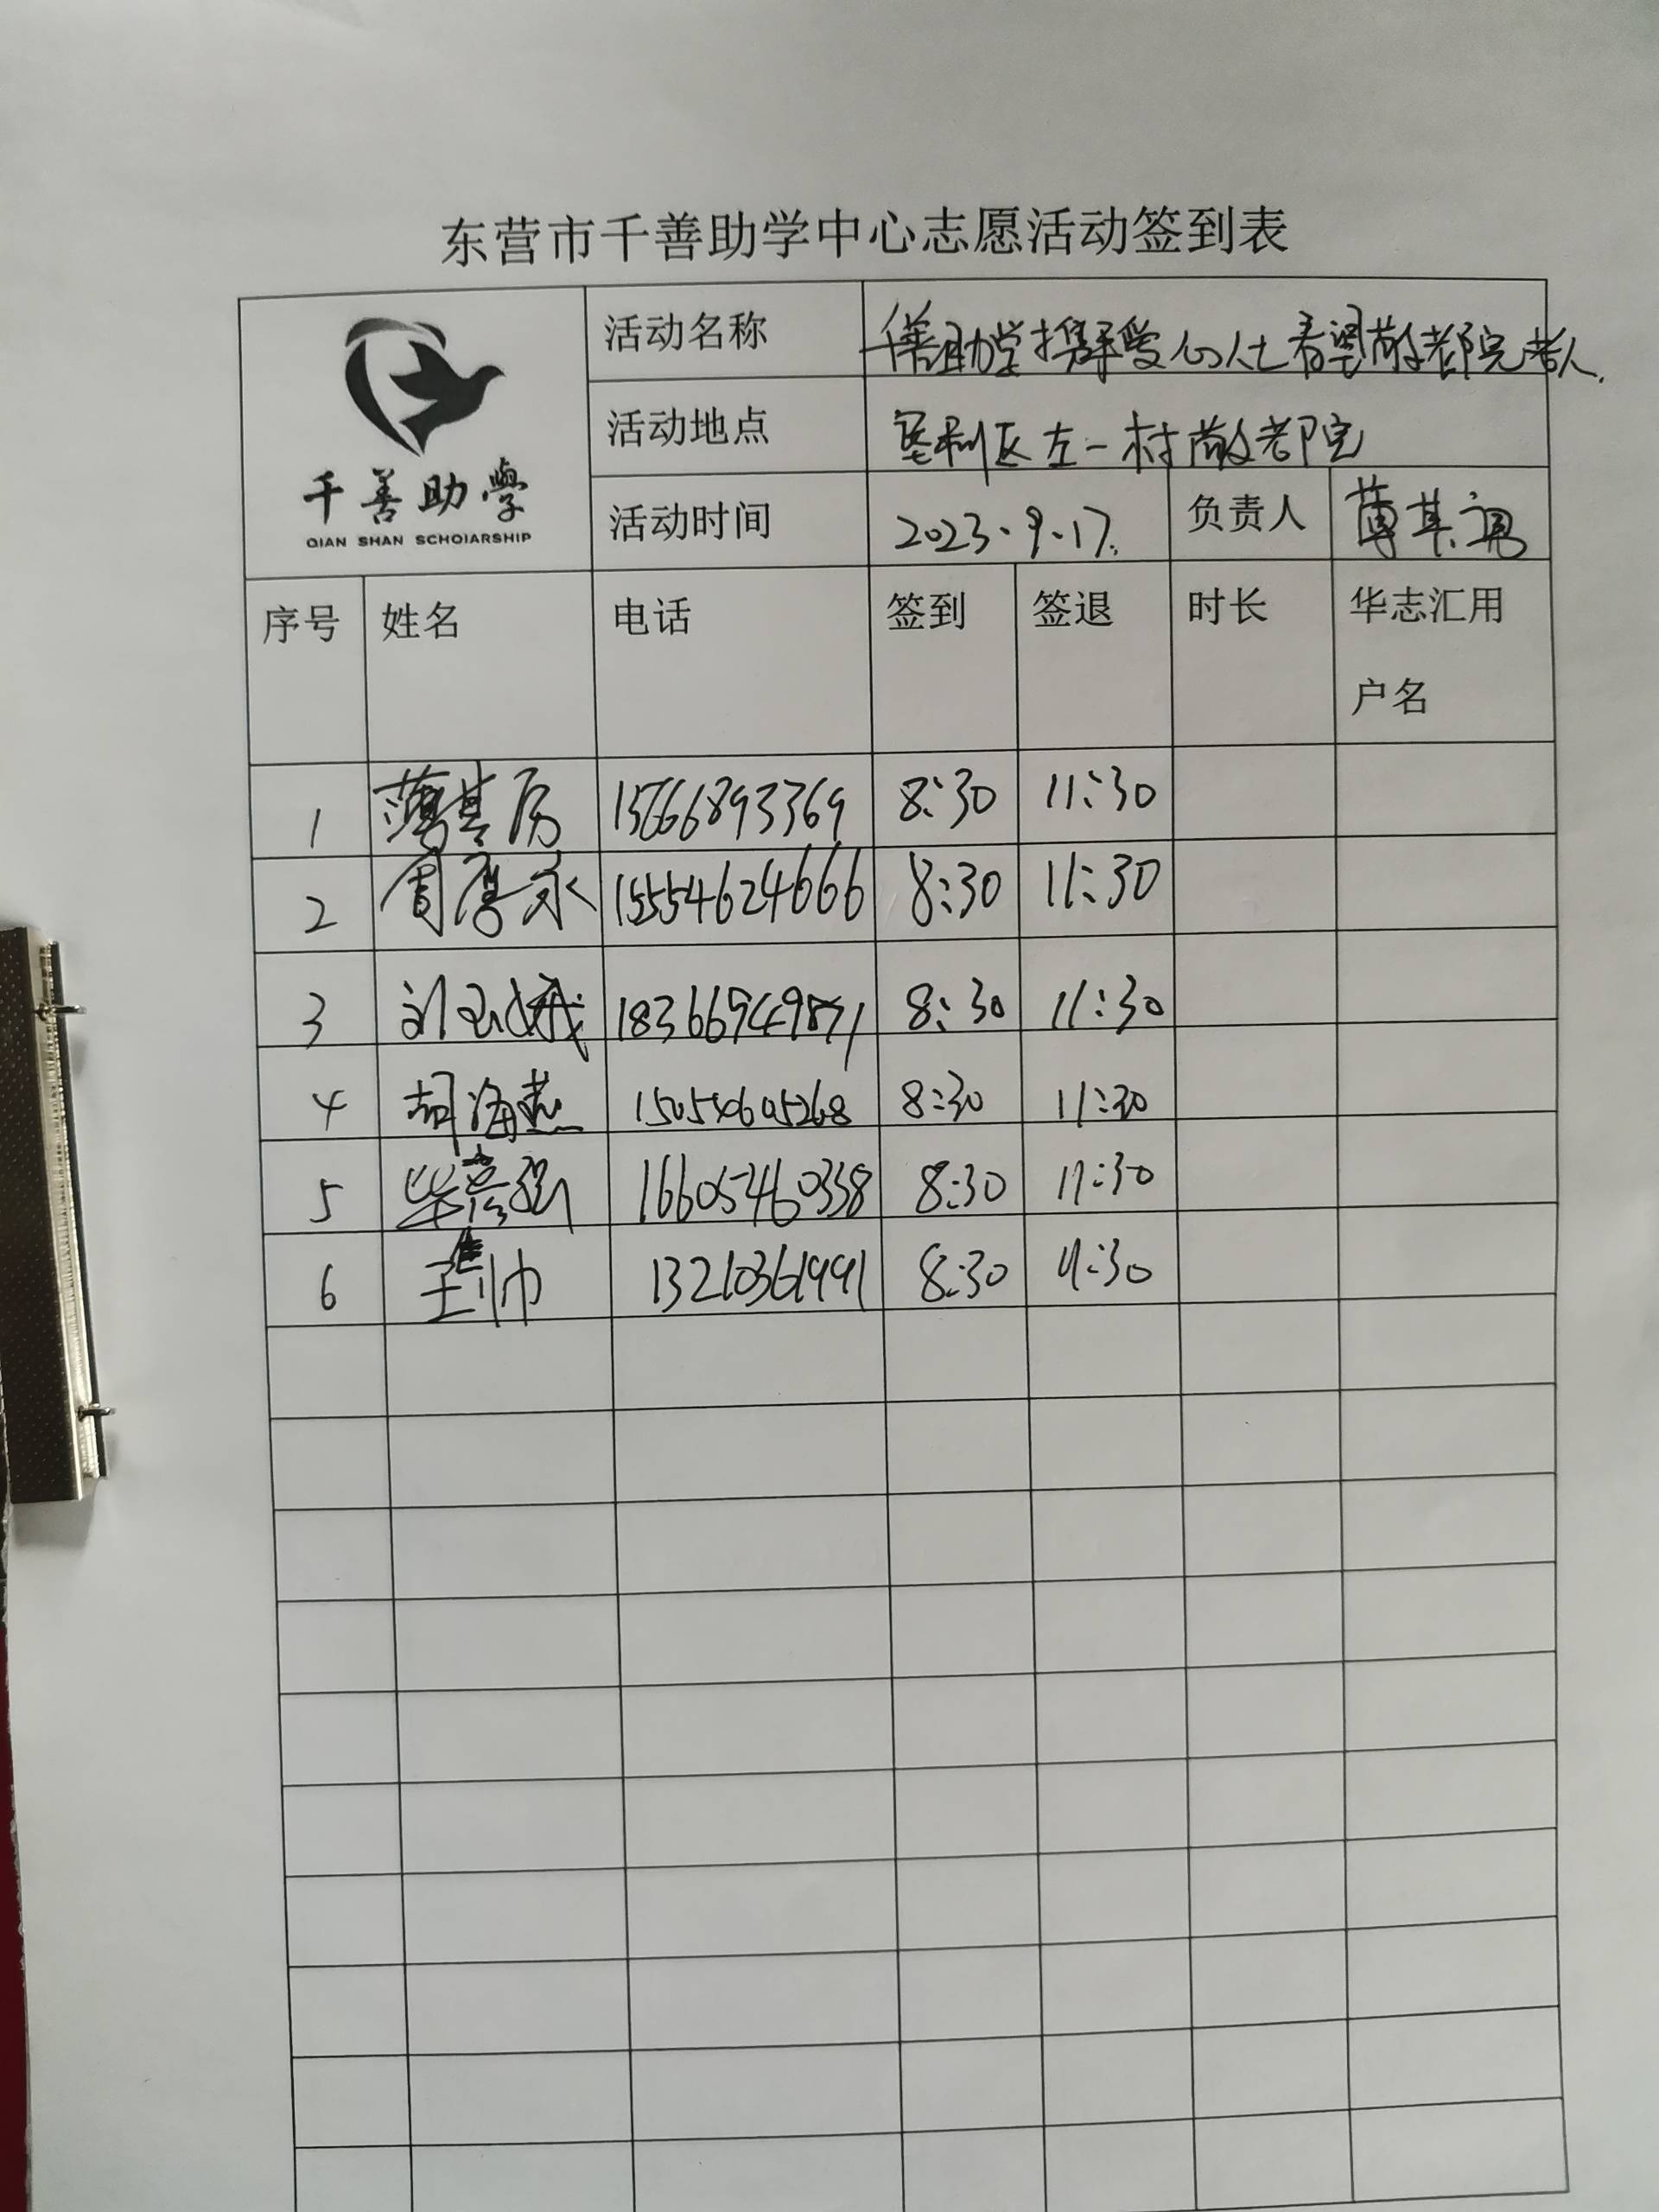 东营市千善助学中心志愿活动签到表
千善助學
QIAN SHAN SCHOIARSHIP
活动名称 千善助学携手爱心人士看望敬老院老人.
活动地点 垦利区左一村敬老院
活动时间 2023.9.17. 负责人 薄其
序号 姓名 电话 签到 签退 时长 华志汇用
户名
1 薄其 15666893369 8:30 11:30
2 周厚永 15554624666 8:30 11:30
3 刘玉娥 8:30 11:30
4 胡海燕 15054605268 8:30 11:30
5 柴 16605460338 8:30 11:30
6 帅 13210361991 8:30 11:30